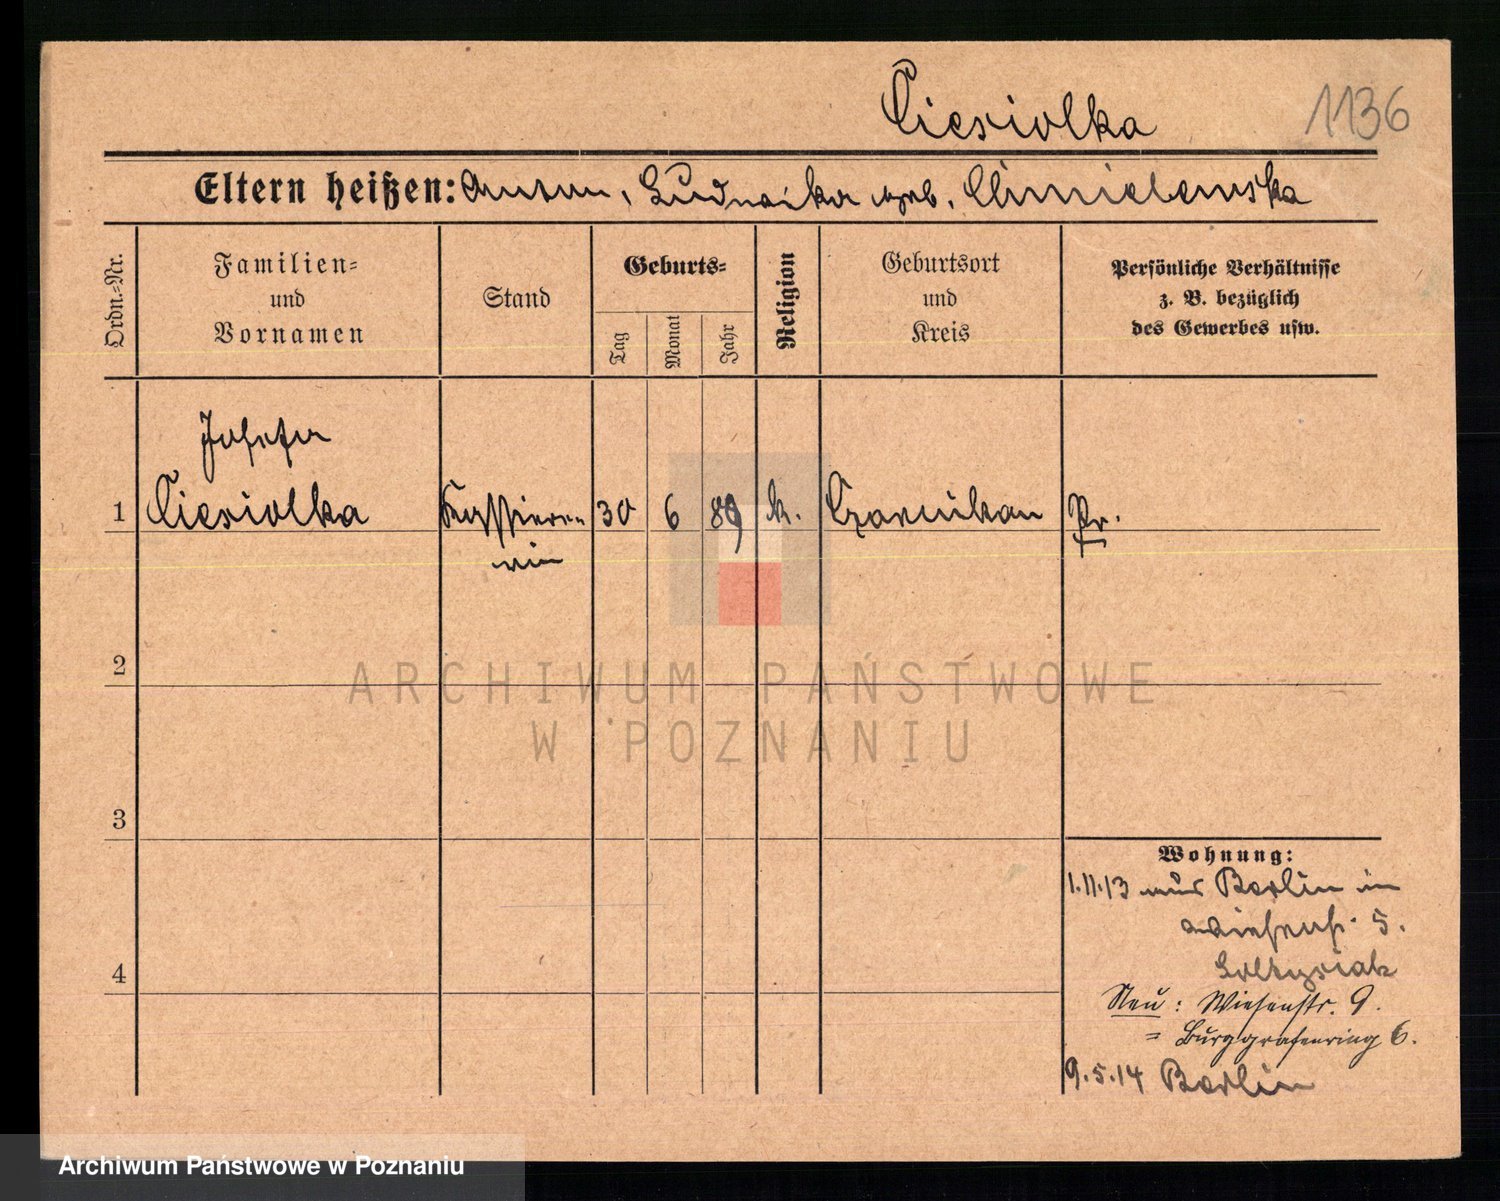 Ciesiolka 1136
Eltern heißen: Anton, Ludwika geb. Chmielewska
Ordn.-Nr.
Familien-
und
Vornamen
Stand
Geburts-
Tag
Monat
Jahr
Religion
Geburtsort
und
Kreis
Persönliche Verhältnisse
z. B. bezüglich
des Gewerbes usw.
Josefa
1 Ciesiolka 30 6 89 k. Czarnikau Pr.
rin
2
3
4
Wohnung:
1.11.13 aus Berlin in
Wiesenstr. 5.
Soltysiak
Neu: Wiesenstr. 9.
= Burggrafenring 6.
9.5.14 Berlin
ARCHIWUM PAŃSTWOWE
W POZNANIU
Archiwum Państwowe w Poznaniu